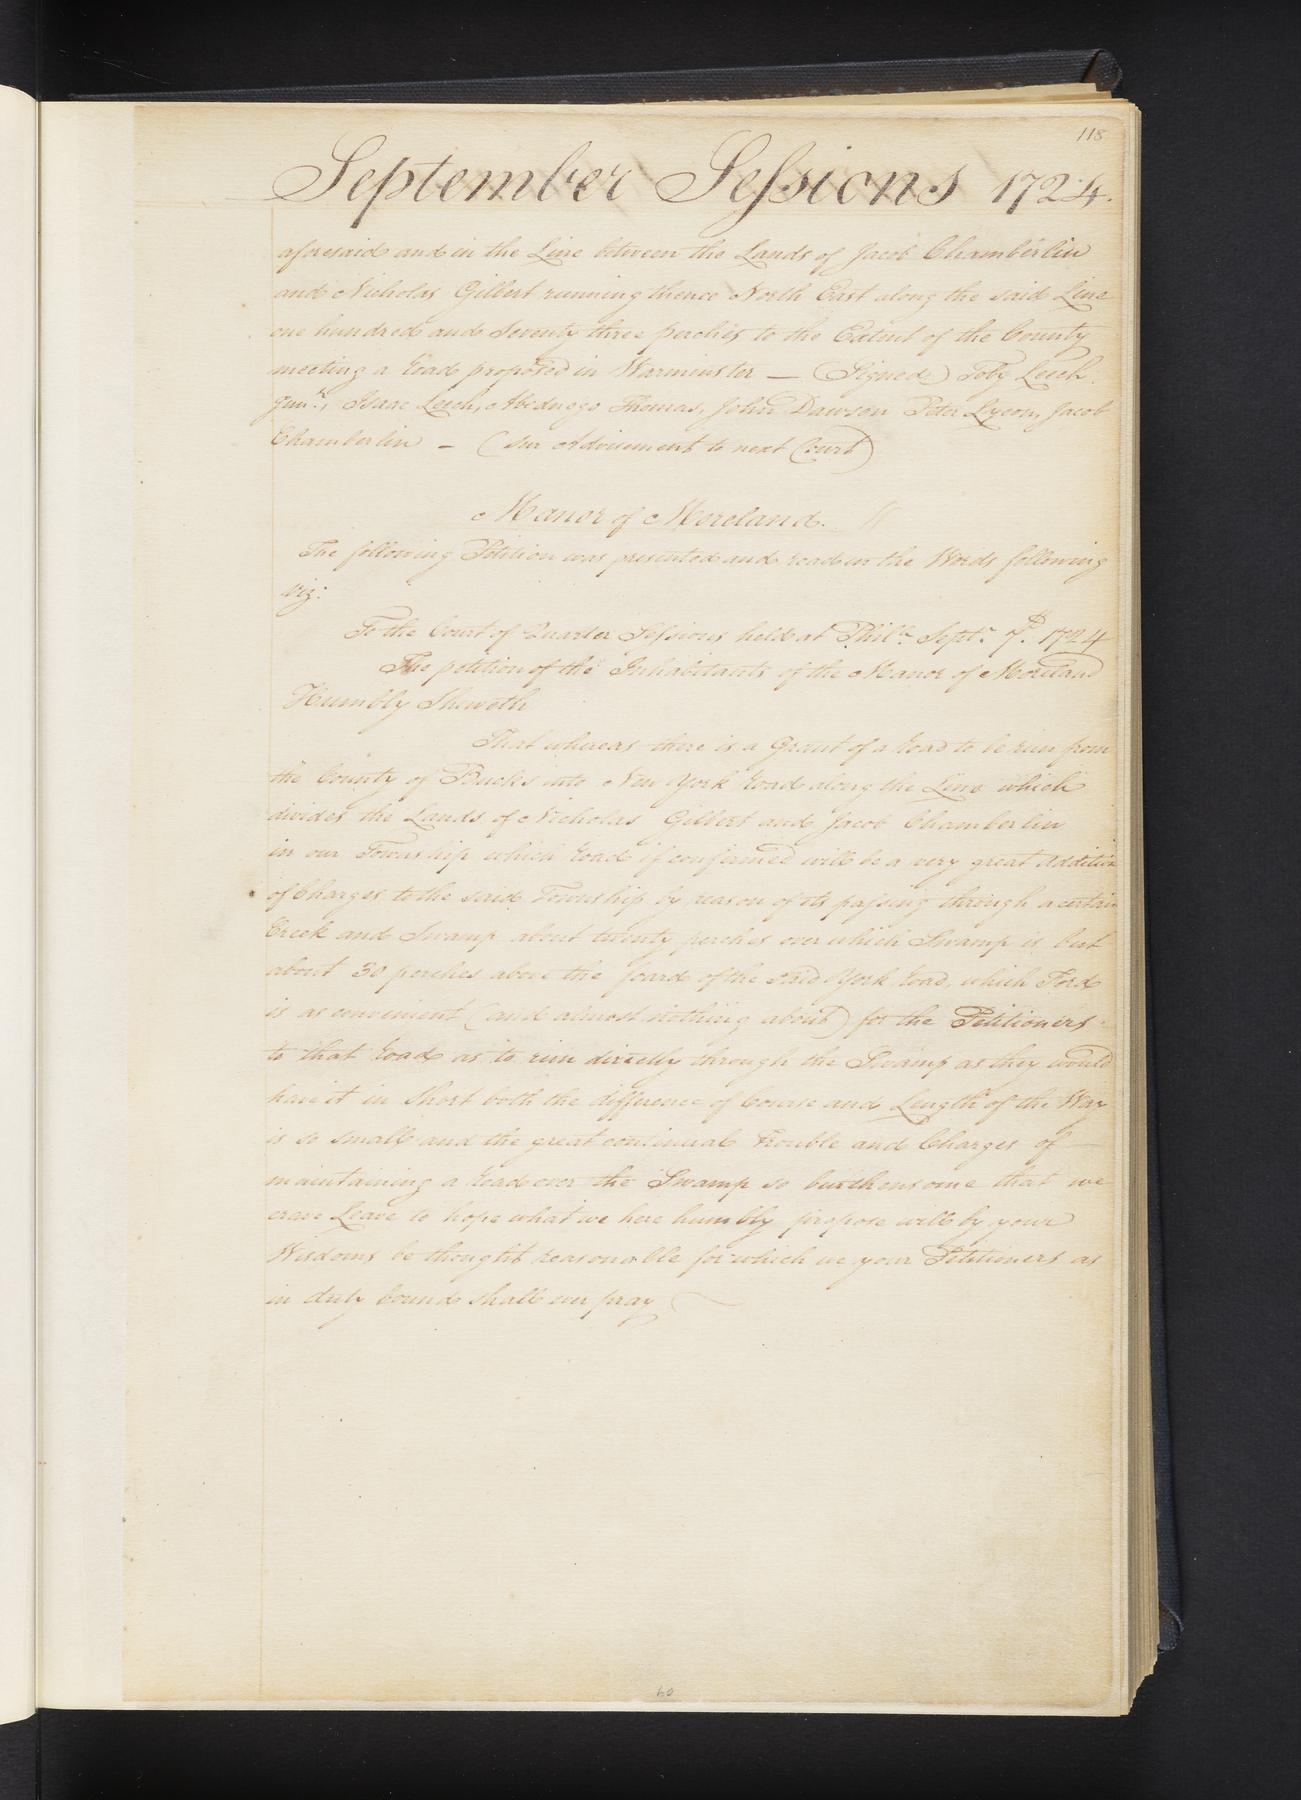 118
September Sessions 1724.
aforesaid and in the Line between the Lands of Jacob Chamberlin
and Nicholas Gilbert running thence North East along the said Line
one hundred and Seventy three perches to the Extent of the County
meeting a Road proposed in Warminster — (Signed) Toby Leech
Junr., Isaac Leech, Abednego Thomas, John Dawson Peter Lycon, Jacob
Chamberlin — (Cur Advisement to next Court)
Manor of Moreland.
The following Petition was presented and read in the Words following
viz:
To the Court of Quarter Sessions held at Phila. Septr. 7th. 1724
The petition of the Inhabitants of the Manor of Moreland
Humbly Sheweth
That whereas there is a Grant of a Road to be run from
the County of Bucks into New York Road along the Line which
divides the Lands of Nicholas Gilbert and Jacob Chamberlin
in our Township which Road if confirmed will be a very great Addition
of Charges to the said Township by reason of its passing through a certain
Creek and Swamp about twenty perches over which Swamp is but
about 30 perches above the foard of the said York Road, which Ford
is as convenient (and almost nothing about) for the Petitioners
to that Road as to run directly through the Swamp as they would
have it in Short both the difference of Course and Length of the Way
is so small and the great continual Trouble and Charges of
maintaining a Road over the Swamp so burthensome that we
crave Leave to hope what we here humbly propose will by your
Wisdoms be thought reasonable for which we your Petitioners as
in duty bound shall ever pray
60